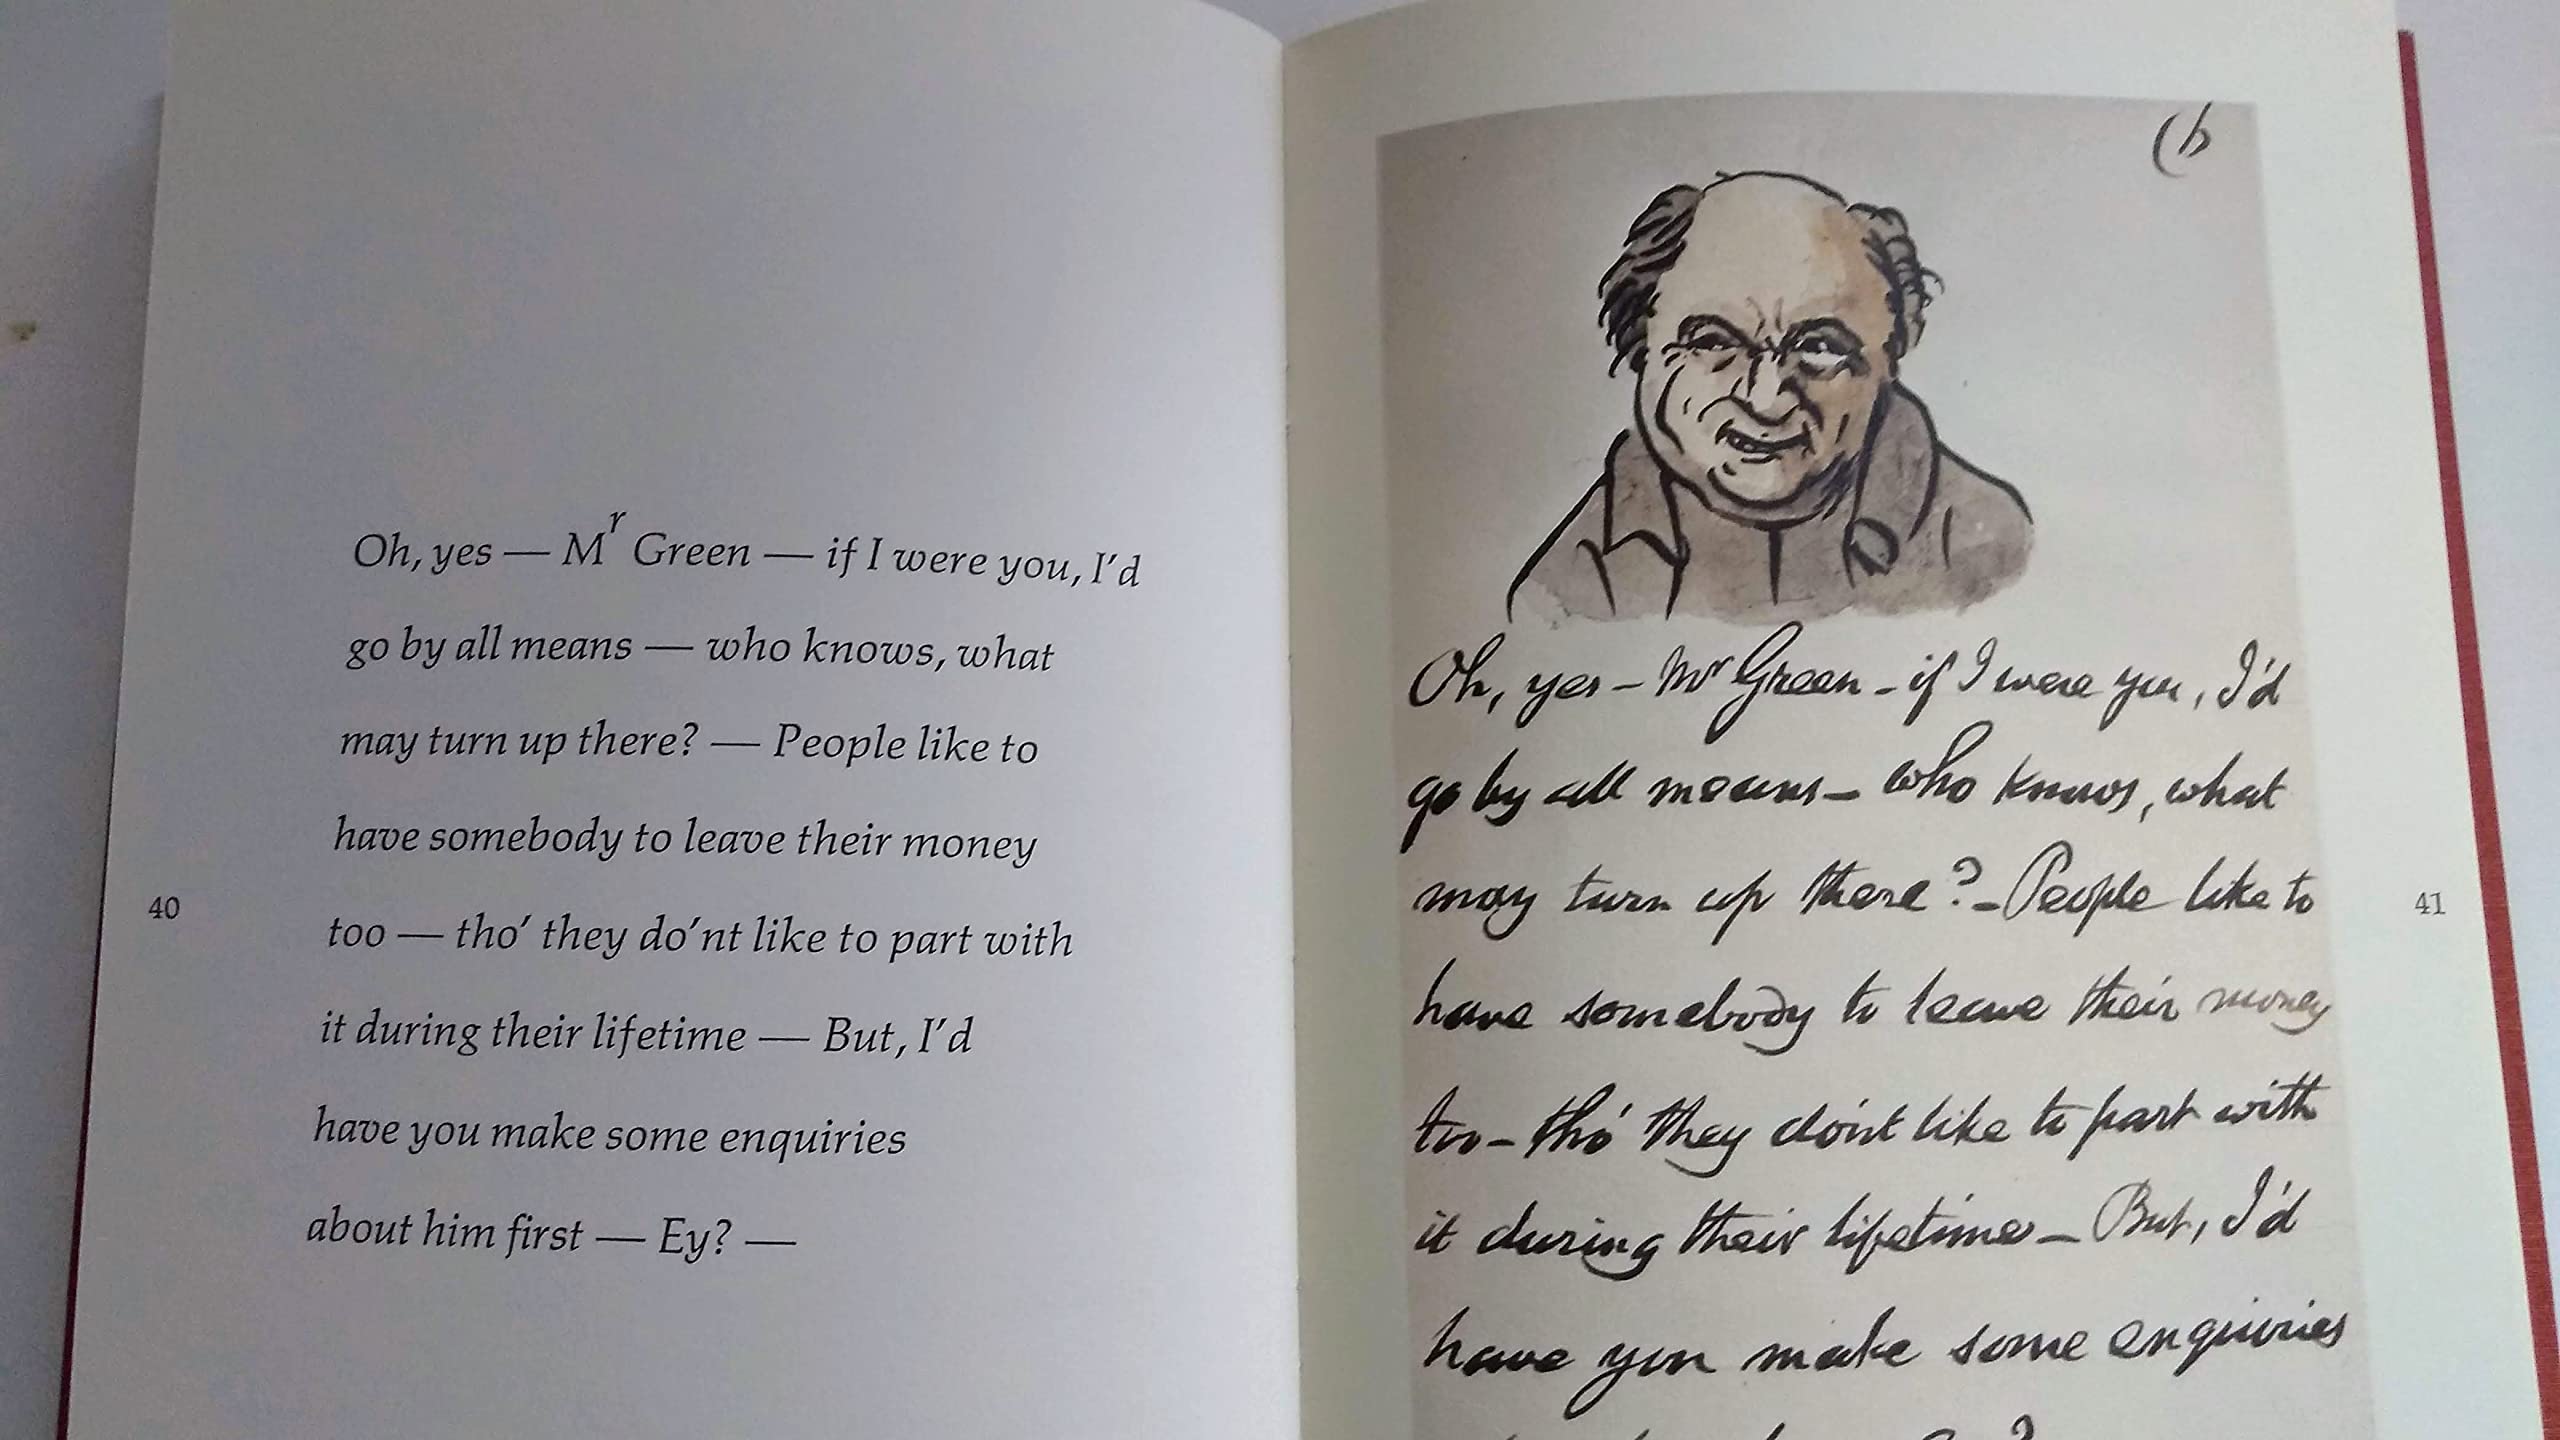 Oh, yes — Mr Green — if I were you, I'd
go by all means — who knows, what
may turn up there? — People like to
have somebody to leave their money
too — tho' they do'nt like to part with
it during their lifetime — But, I'd
have you make some enquiries
about him first — Ey? —
40
Oh, yes — Mr Green — if I were you, I'd
go by all means — who knows, what
may turn up there? — People like to
have somebody to leave their money
too — tho' they do'nt like to part with
it during their lifetime — But, I'd
have you make some enquiries
41